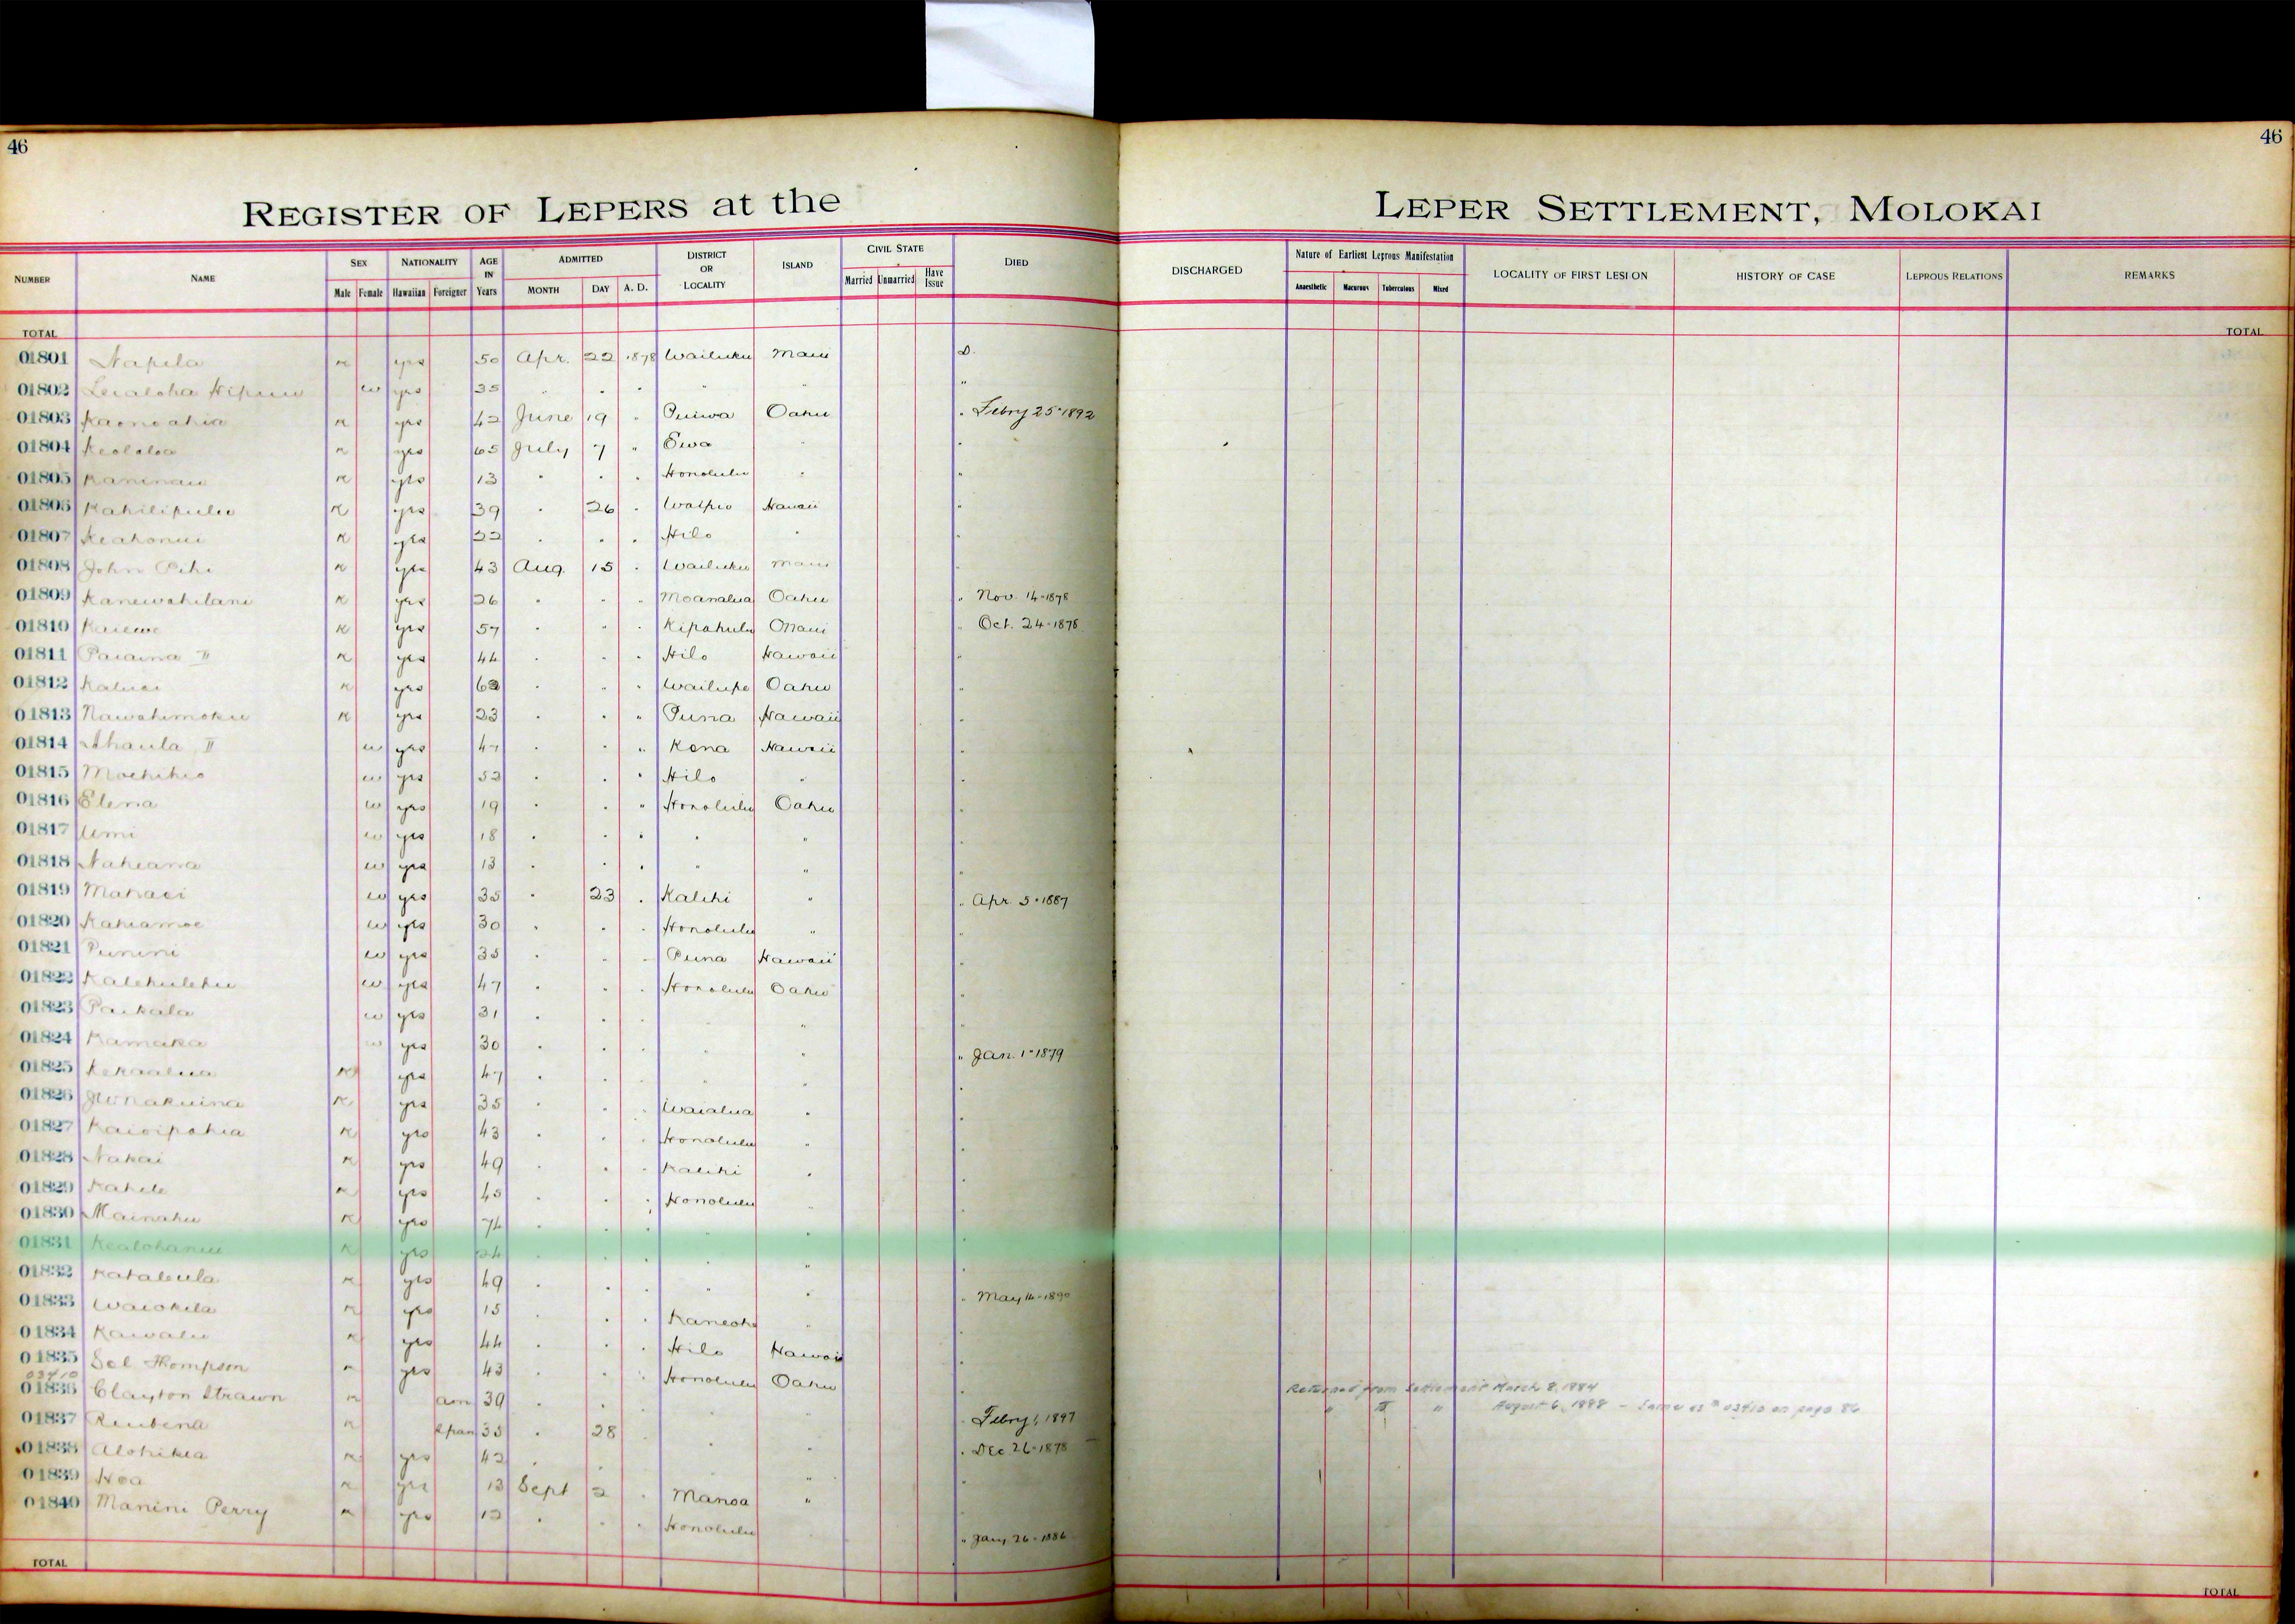 46
46
REGISTER OF LEPERS at the LEPER SETTLEMENT, MOLOKAI
NUMBER NAME SEX NATIONALITY AGE IN Years ADMITTED DISTRICT OR LOCALITY ISLAND CIVIL STATE DIED DISCHARGED Nature of Earliest Leprous Manifestation LOCALITY OF FIRST LESION HISTORY OF CASE LEPROUS RELATIONS REMARKS
Male Female Hawaiian Foreigner MONTH DAY A. D. Married Unmarried Have Issue Anaesthetic Macurous Tuberculous Mixed
TOTAL TOTAL
01801 Napela K yes 50 Apr. 22 1878 Wailuku Maui D.
01802 Leialoha w yes 35 " " " " " "
01803 Kaonoahia K yes 42 June 19 " Oahu " Febry 25-1892
01804 Keololoa K yes 65 July 7 " Ewa " "
01805 Kaninau K yes 13 " " " Honolulu " "
01806 Kahilipulu K yes 39 " 26 " Waipio Hawaii "
01807 Keahonui K yes 22 " " " Hilo " "
01808 John K yes 43 Aug. 15 " Wailuku Maui "
01809 Kanewahilani K yes 26 " " " Moanalua Oahu " Nov. 14-1878
01810 Kaiewe K yes 57 " " " Kipahulu Maui " Oct. 24-1878
01811 Paiaina II K yes 44 " " " Hilo Hawaii "
01812 Kaluai K yes 62 " " " Wailupe Oahu "
01813 Nawahimoku K yes 23 " " " Puna Hawaii "
01814 Ahaula II w yes 47 " " " Kona Hawaii "
01815 w yes 52 " " " Hilo " "
01816 Elena w yes 19 " " " Honolulu Oahu "
01817 Umi w yes 18 " " " " " "
01818 Nakeana w yes 13 " " " " " "
01819 Mahaei w yes 35 " 23 " Kalihi " " Apr. 5-1887
01820 Kahiamoe w yes 30 " " " Honolulu " "
01821 Punini w yes 35 " " " Puna Hawaii "
01822 Kalehulehu w yes 47 " " " Honolulu Oahu "
01823 Paikala w yes 31 " " " " " "
01824 Kamaka w yes 30 " " " " " " Jan. 1-1879
01825 Kekaalua K yes 47 " " " " " "
01826 K yes 35 " " " Waialua " "
01827 Kaioipohia K yes 43 " " " Honolulu " "
01828 Nakai K yes 49 " " " Kalihi " "
01829 Kahele K yes 45 " " " Honolulu " "
01830 Mainahu K yes 74 " " " " " "
01831 Kealohanui K yes 24 " " " " " "
01832 Kahaleula K yes 49 " " " " " " May 14-1890
01833 Waiokila K yes 15 " " " Kaneohe " "
01834 Kawalu K yes 44 " " " Hilo Hawaii "
01835 Sol Thompson K yes 43 " " " Honolulu Oahu "
03410
01836 Clayton Strawn K am 39 " " " " " " Febry 1, 1897 Returned from Settlement March 8, 1884
" " " August 6, 1888 - Same as # 03410 on page 86
01837 Reubena K Span 35 " 28 " " " " Dec 26-1878
01838 Alohikea K yes 42 " " " " " "
01839 Hoa K yes 13 Sept 2 " Manoa " "
01840 Manini Perry K yes 12 " " " Honolulu " " Jany 26-1886
TOTAL TOTAL